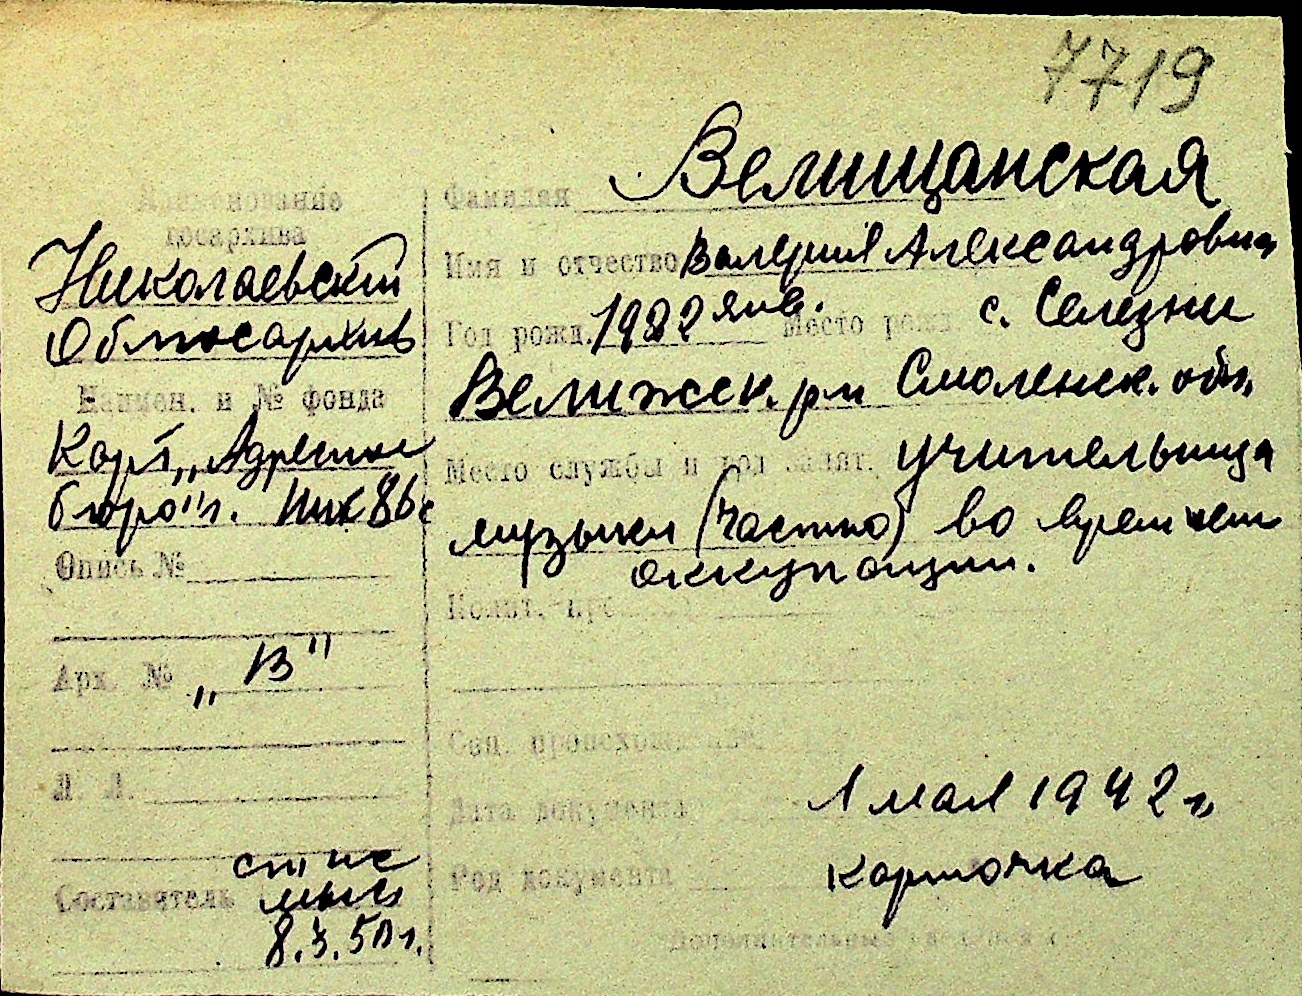 7719
Наименование
госархива
Николаевский
Облгосархив
Наимен. и № фонда
Карт. „Адресное
бюро" г. Ник
Опись №
Арх. № „В"
Л. Л.
Составитель
8.3.50 г.
Фамилия Велищанская
Имя и отчество Валерия Александровна
Год рожд. 1922 янв. Место рожд с. Селезни
Велижск. р-н Смоленск. обл.
Место службы и род занят. учительница
музыки (частно) во время нем
оккупации.
Полит. пр
Соц. происхождение
Дата документа 1 мая 1942 г.
Род документа карточка
Дополнительные сведения